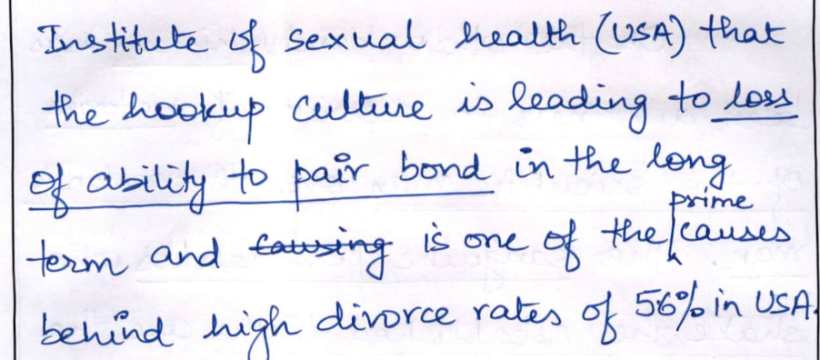 Institute of sexual health (USA) that
the hookup culture is leading to loss
of ability to pair bond in the long
term and causing is one of the prime causes
behind high divorce rates of 56% in USA.